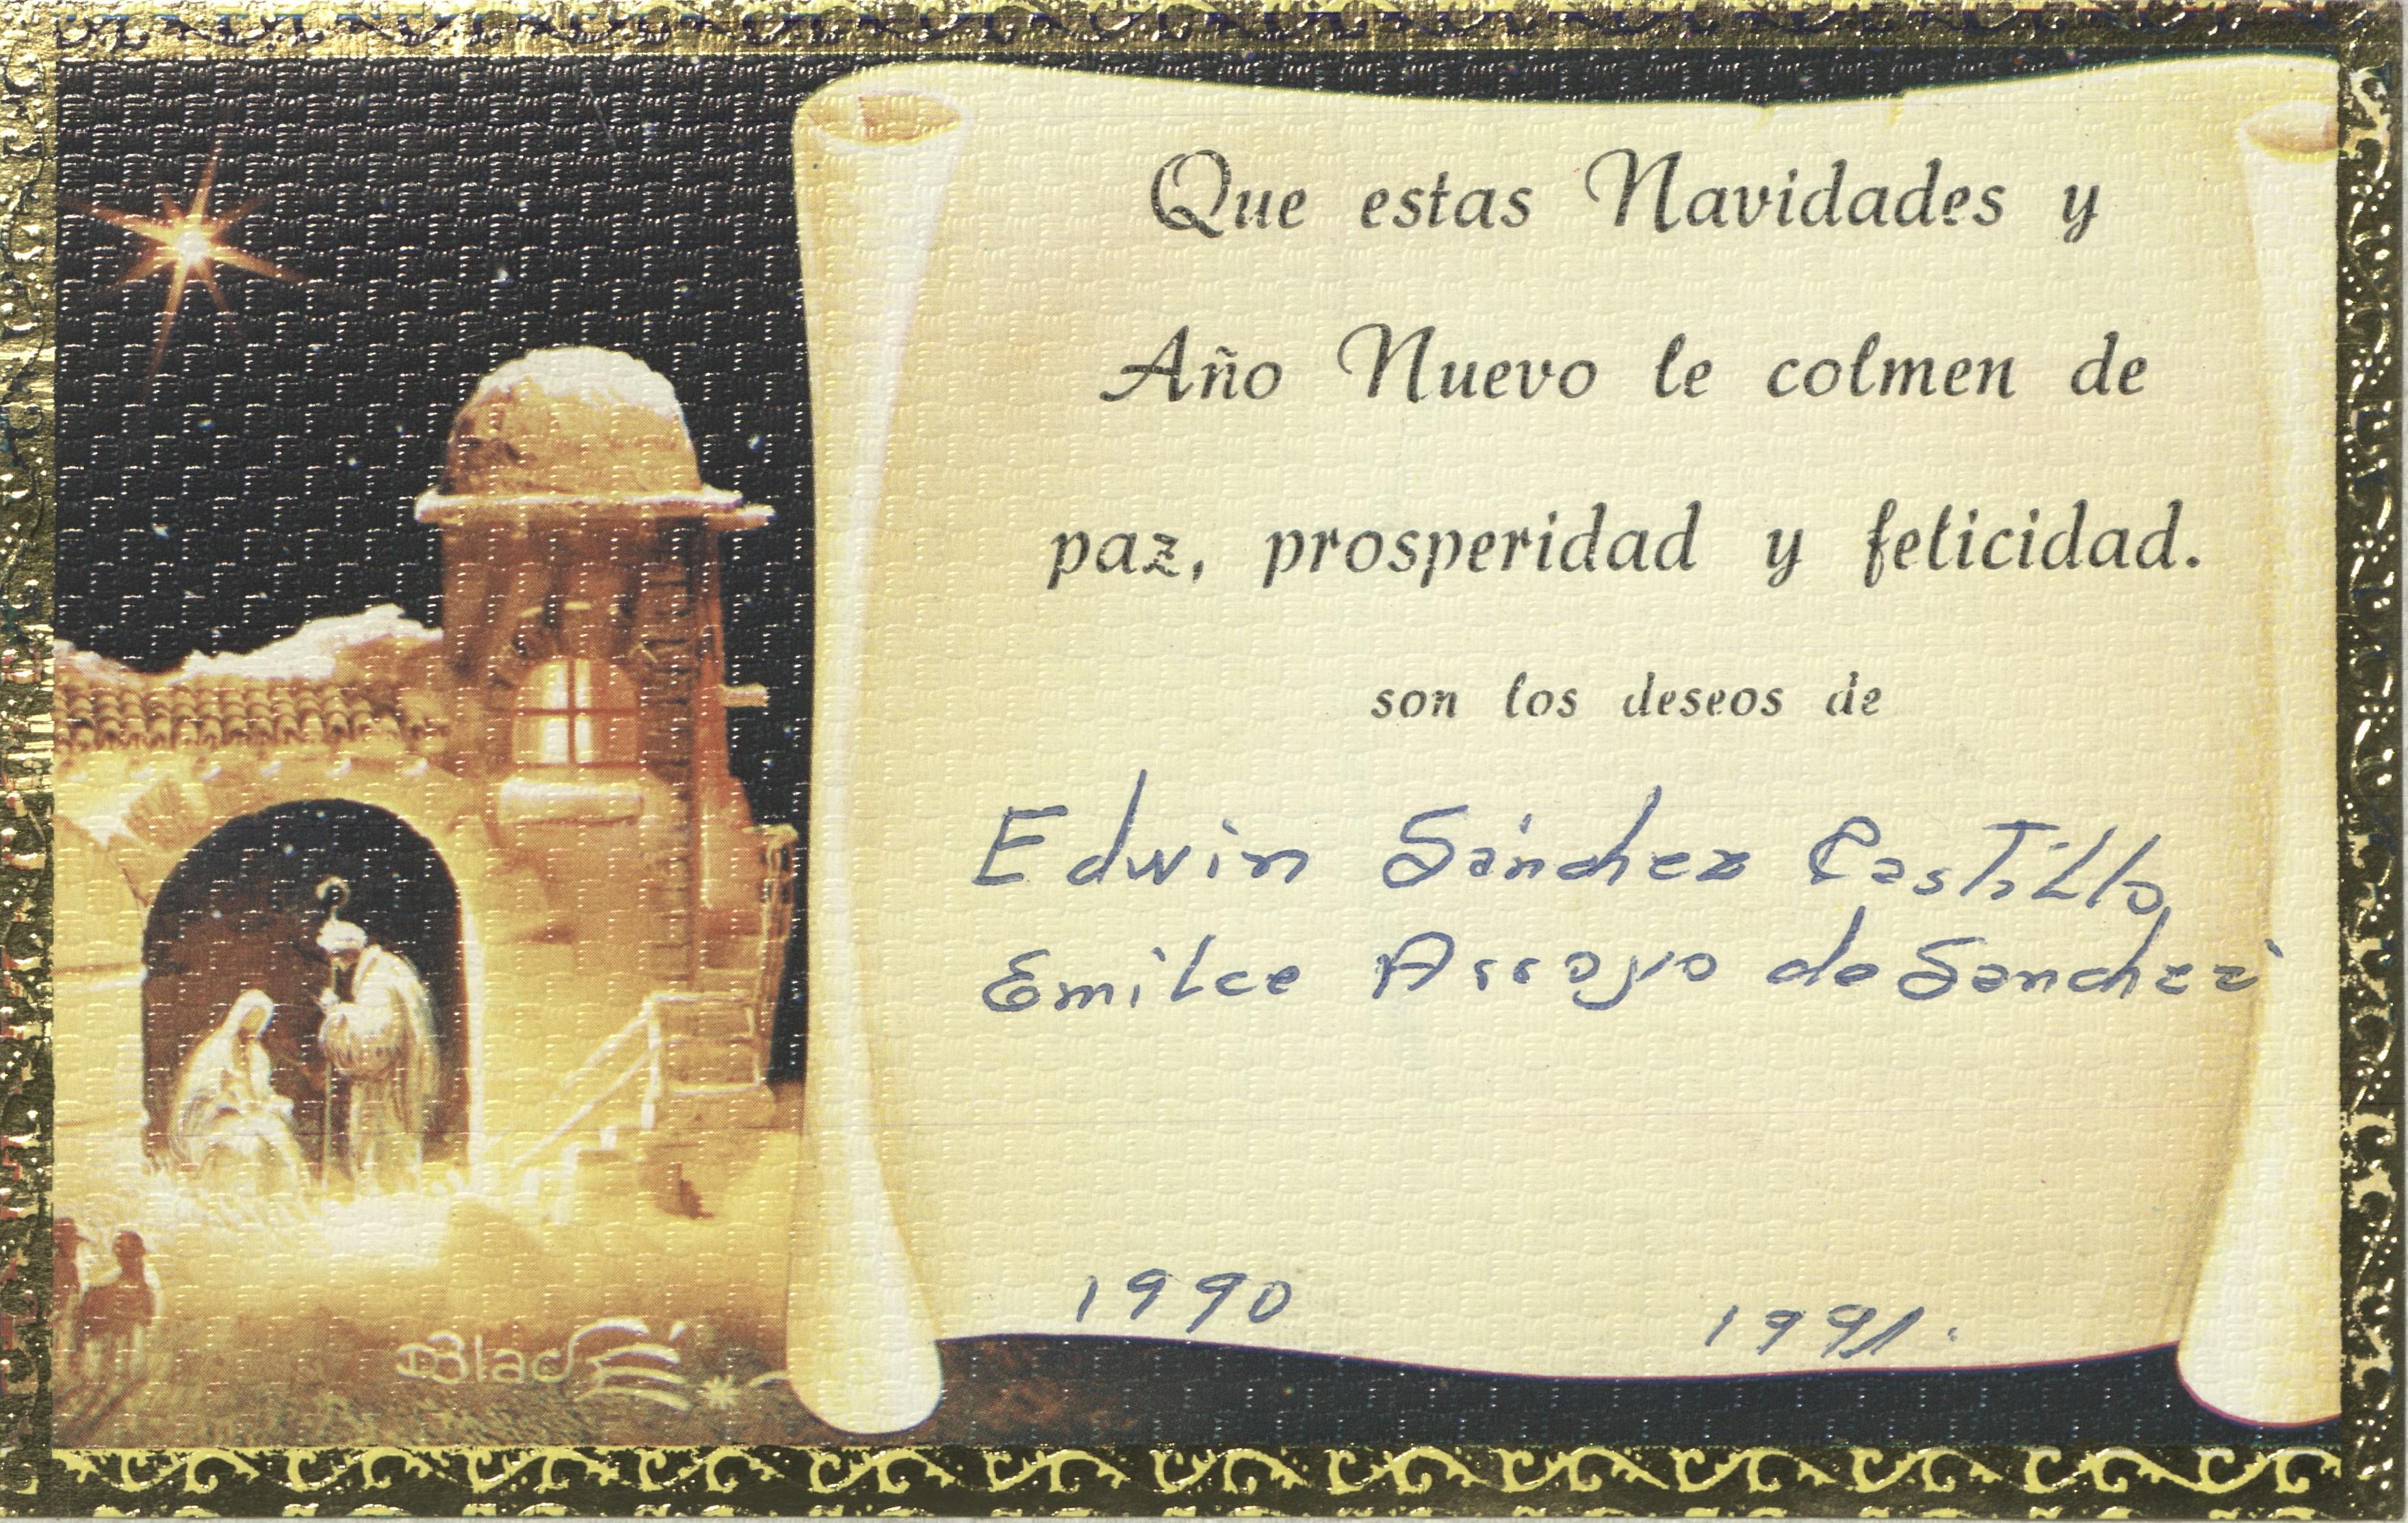 Que estas Navidades y
Año Nuevo le colmen de
paz, prosperidad y felicidad.
son los deseos de
Edwin Sánchez Castillo
Emilce Arroyo de Sanchez
1990 1991.